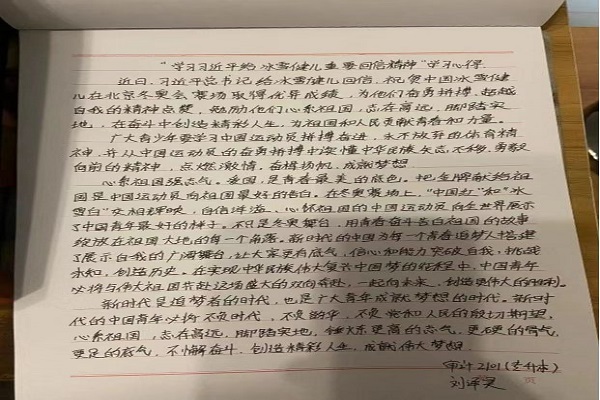 “学习习近平给冰雪健儿重要回信精神”学习心得
近日，习近平总书记给冰雪健儿回信，祝贺中国冰雪健
儿在北京冬奥会赛场取得优异成绩，为他们奋勇拼搏、超越
自我的精神点赞，勉励他们心系祖国，志在高远，脚踏实
地，在奋斗中创造精彩人生，为祖国和人民贡献青春和力量。
广大青少年要学习中国运动员拼搏奋进、永不放弃的体育精
神，并从中国运动员的奋勇拼搏中读懂中华民族矢志不移、勇毅
向前的精神，点燃激情、奋楫扬帆，成就梦想。
心系祖国强志气。爱国，是青春最美的底色。把金牌献给祖
国是中国运动员向祖国最好的告白。在冬奥赛场上，“中国红”和“冰
雪白”交相辉映，自信洋溢、心怀祖国的中国运动员向全世界展示
了中国青年最好的样子。不只是冬奥舞台，用青春奋斗告白祖国的故事
绽放在祖国大地的每一个角落。新时代的中国为每一个青春追梦人搭建
了展示自我的广阔舞台，让大家更有底气、信心和能力突破自我，挑战
未知，创造历史。在实现中华民族伟大复兴中国梦的征程中，中国青年
必将与伟大祖国共赴这场盛大的双向奔赴，一起向未来，创造更伟大的胜利。
新时代是追梦者的时代，也是广大青年成就梦想的时代。新时
代的中国青年必将不负时代，不负韶华，不负党和人民的殷切期望，
心系祖国，志在高远，脚踏实地，锤炼更高的志气，更硬的骨气，
更足的底气，不懈奋斗，创造精彩人生，成就伟大梦想。
审计2101（专升本）
刘译灵